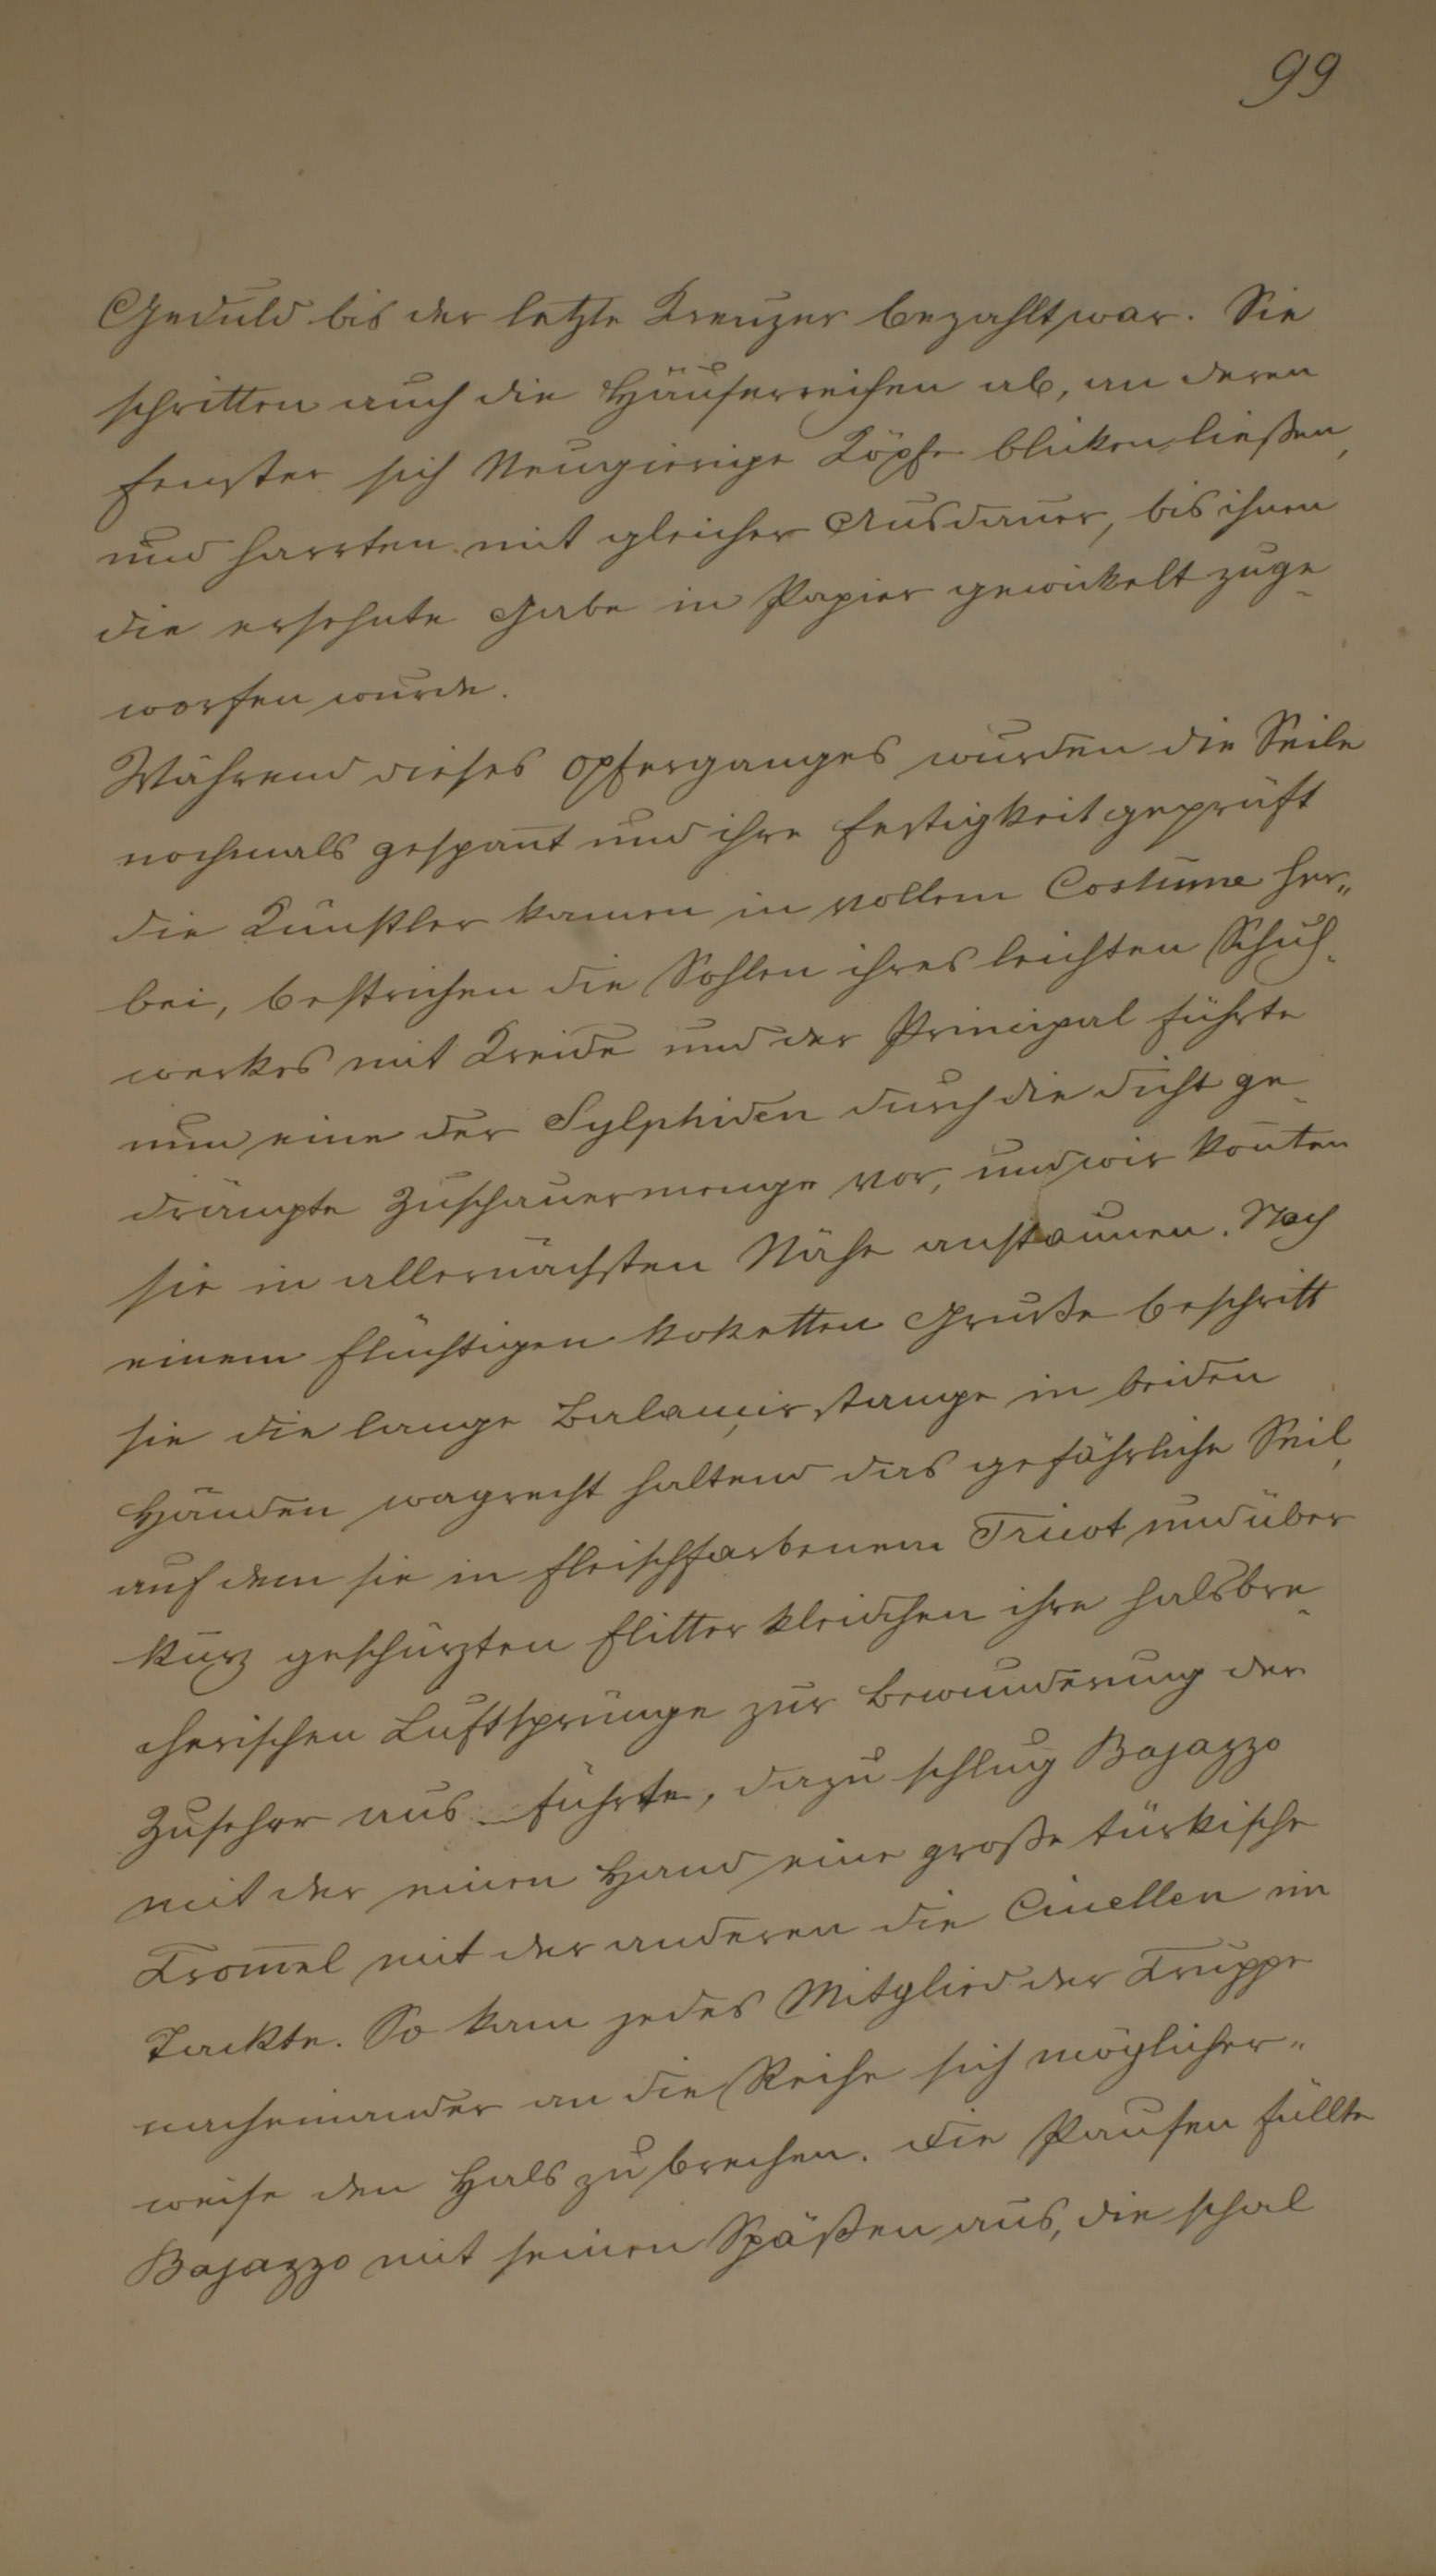 99
Geduld bis der letzte Kreuzer bezahlt war. Sie
schritten auch die Häuserreihen ab, an deren
Fenster sich Neugierige Köpfe blicken ließen,
und harrten mit gleicher Ausdauer, bis ihnen
die ersehnte Gabe in Papier gewickelt zuge-
worfen wurde.
Während dieses Opferganges wurden die Seile
nochmals gespan̄t und ihre Festigkeit geprüft
die Künstler kamen in vollem Costüme her„
bei, bestrichen die Sohlen ihres leichten Schuh-
werkes mit Kreide und der Principal führte
nun eine der Sylphiden durch die dicht ge-
drängte Zuschauermenge vor, und wir kon̄ten
sie in allernächsten Nähe anstaunen. Nach
einem flüchtigen koketten Gruße beschritt
sie die lange Balançirstange in beiden
Händen wagrecht haltend das gefährliche Seil,
auf dem sie in fleischfarbenem Tricot und über
kurz geschürzten Flitterkleidchen ihre halsbre-
cherischen Luftsprünge zur Bewunderung der
Zuseher aus führte, dazu schlug Bajazzo
mit der einen Hand eine große türkische
Trom̄el mit der anderen die Cinellen im
Tackte. So kam jedes Mitglied der Truppe
nacheinander an die Reihe sich möglicher„
weise den Hals zu brechen. Die Pausen füllte
Bajazzo mit seinen Späßen aus, die schal